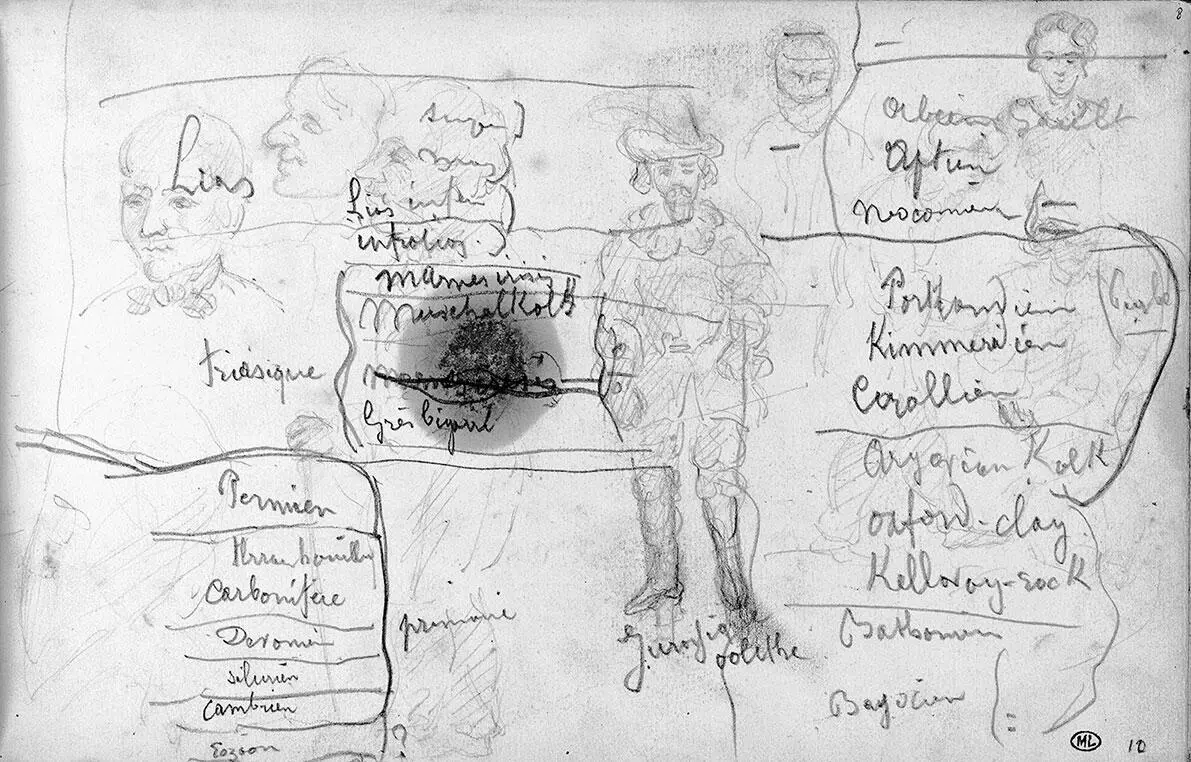 8
Lias
Lias infer
infralias
Marnes irisées
Muschelkalk
triasique
Grès bigarré
Permien
Carbonifère
Devonien
silurien
Cambrien
Eozoon
?
primaire
Jurassiq
oolithe
Albien Gault
Aptien
Neocomien
Portlandien
Kimmeridien
Corallien
Argovien Kalk
oxford-clay
Kelloway-rock
Bathonien
Bajocien
ML
10